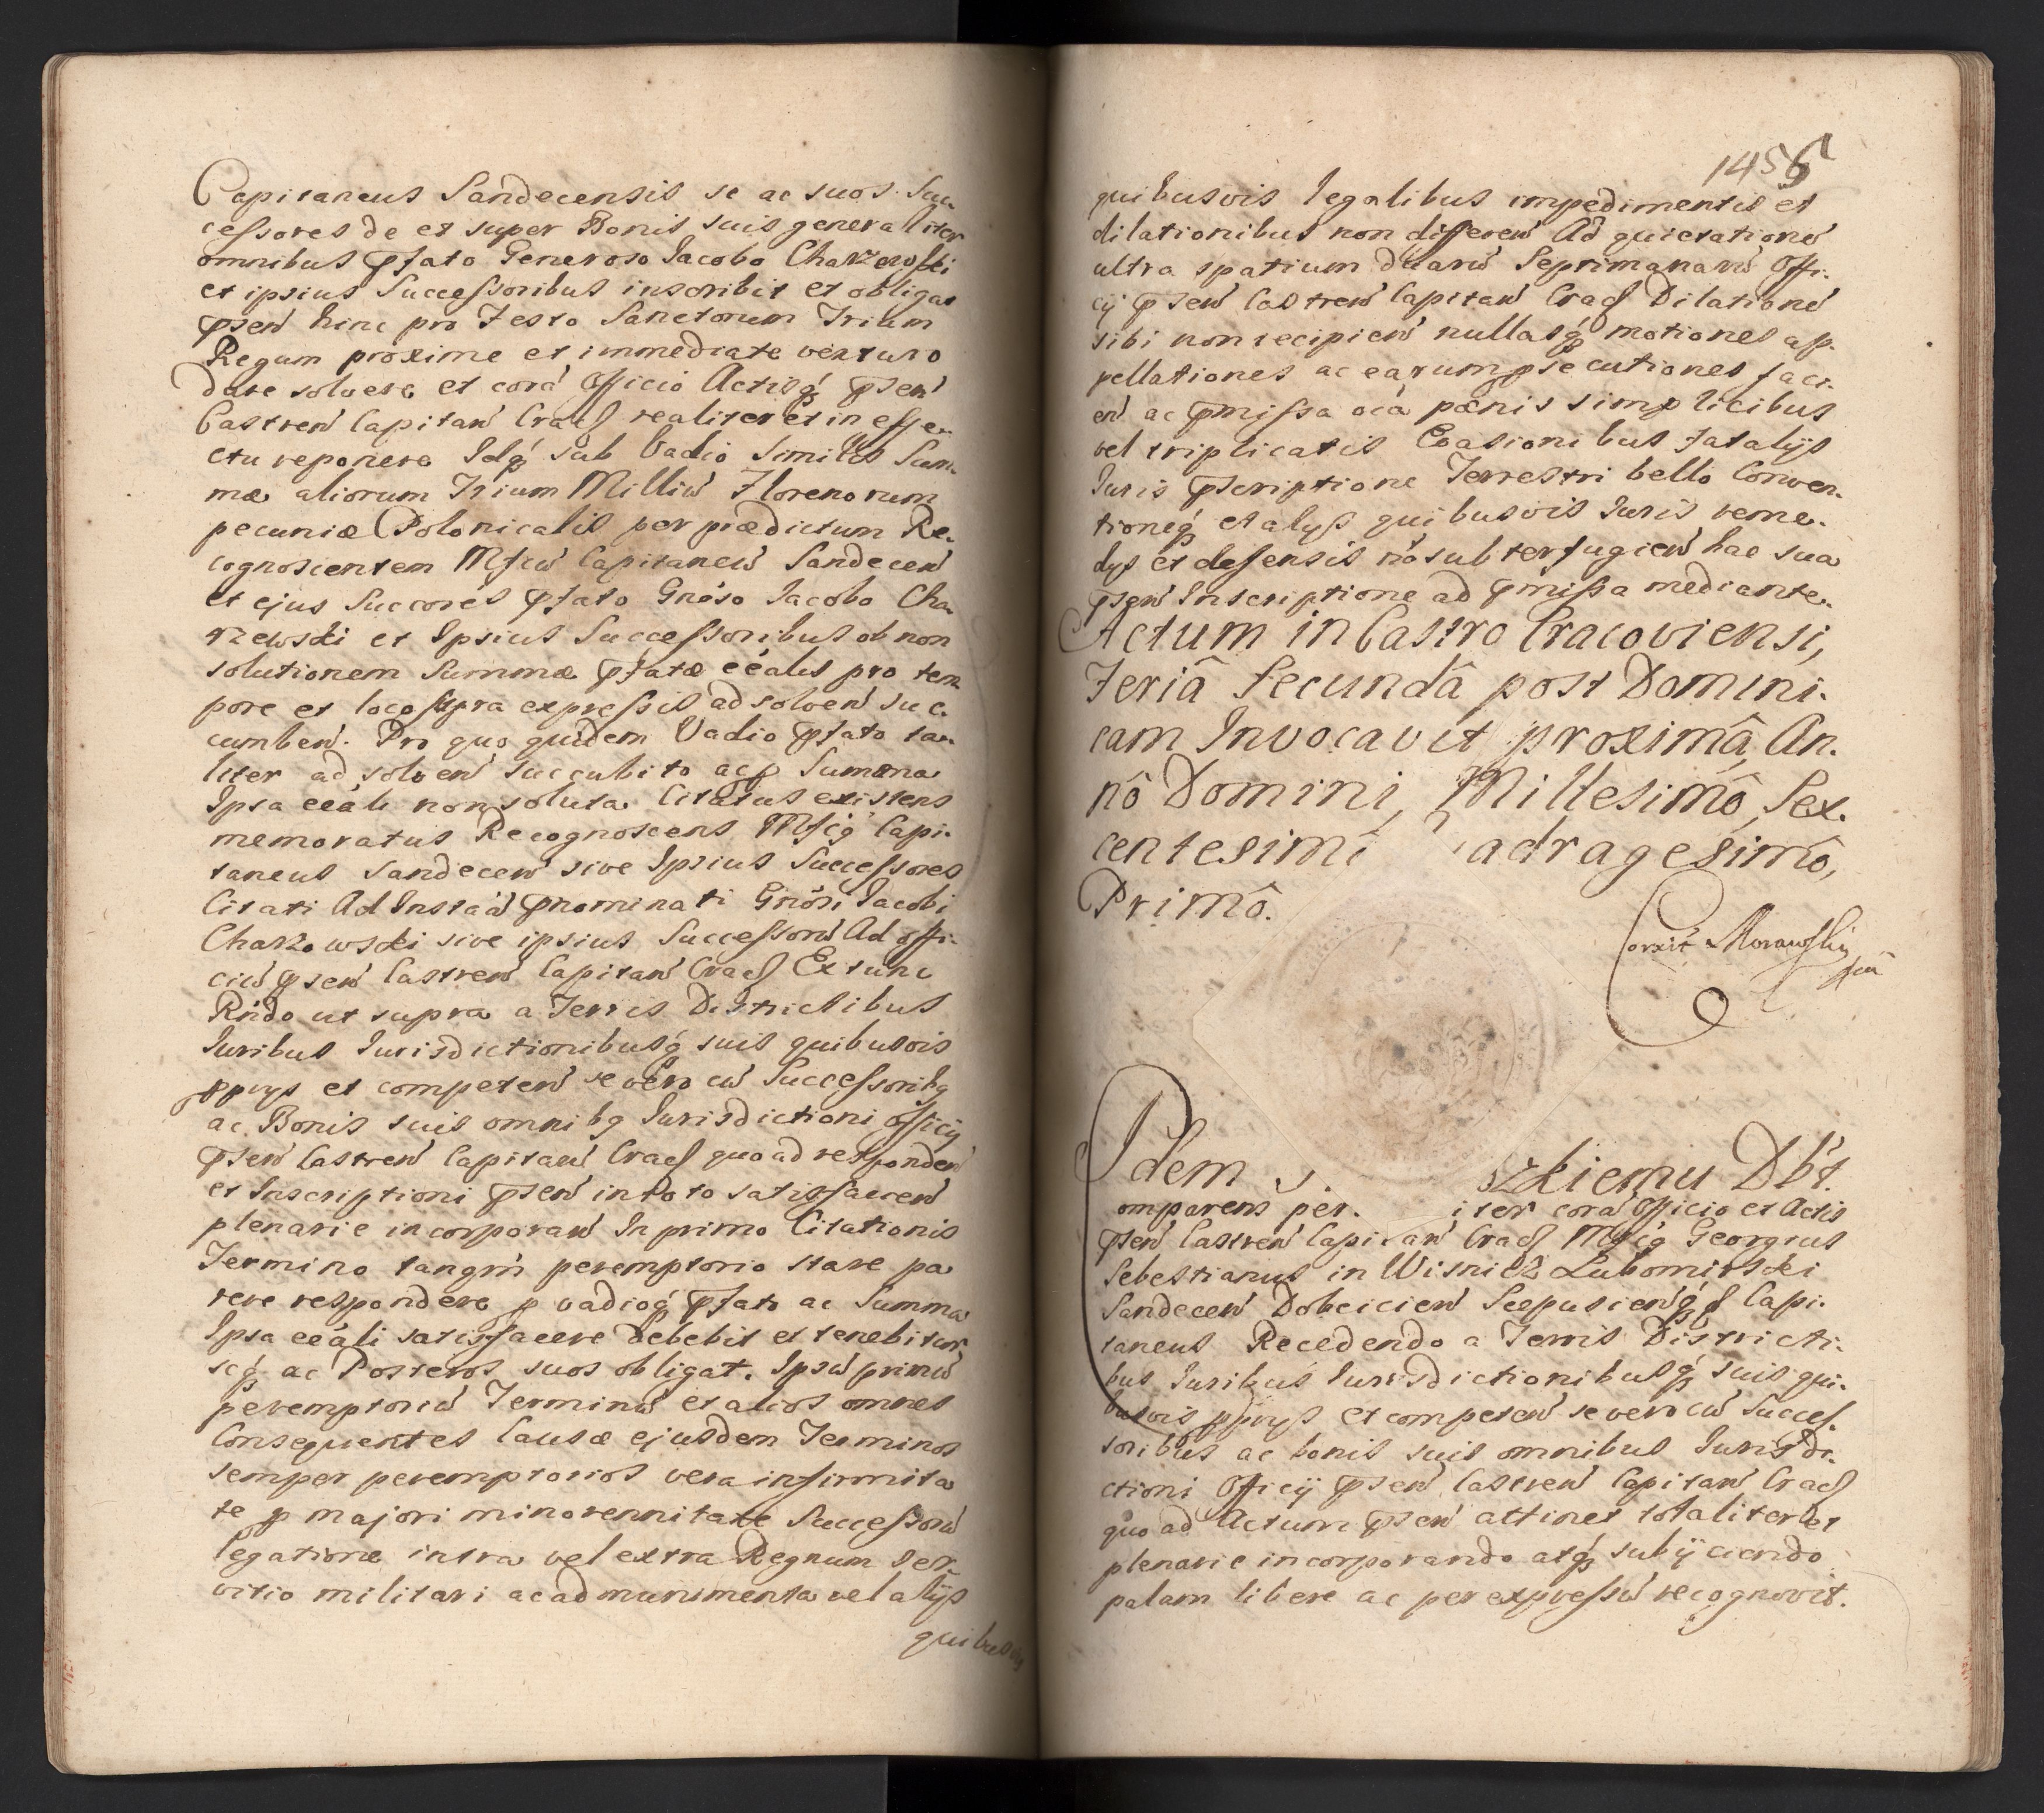 Capitaneus Sandecensis se ac suos Suc-
cessores de et super Bonis suis generaliter
omnibus pfato Generoso Jacobo Charzewski
et ipsius Successoribus inscribit et obligat
pSen hinc pro Festo Sanctorum Trium
Regum proxime et immediate venturo
dare solvere et corà Officio Actisq́ pSen
Castren Capitan Cracſ realiter et in effe-
ctu reponere Idq́ sub Vadio Similis Sum-
mæ aliorum Trium Milliu Florenorum
pecuniæ Polonicalis per prædictum Re-
cognoscentem Mfcu Capitaneu Sandecen
et ejus Succores pfato Gnoso Jacobo Cha-
rzewski et Ipsius Successoribus ob non
solutionem Summæ pfatæ eéalis pro tem-
pore et loco supra expressis ad solven Suc-
cumben. Pro quo quidem Vadio pfato ta-
liter ad solven succubito acp Summa
Ipsa eéali non soluta Citatus existens
memoratus Recognoscens Mfcg Capi-
taneus Sandecen sive Ipsius Successores
Citati Ad Instaà pnominati Gnosi Jacobi
Charzewski sive ipsius Successoru Ad offi-
ciu pSen Castren Capitan Cracſ Extunc
Rndo ut supra a Terris Districtibus
Juribus Jurisdictionibusq́ suis quibusvis
ppriys et competen se vero cu Successoribg
ac Bonis suis omnibg Jurisdictioni officij
pSen Castren Capitan Cracſ quo ad responden
et Inscriptioni pSen in toto satisfacien
plenarie incorporan In primo Citationis
Termino tanqm peremptorio stare pa-
rere respondere p vadioq́ pfato ac Summa
Ipsa eéali satisfacere Debebit et tenebitur
seq́ ac Posteros suos obligat. Ipsu primu
peremptoriu Terminu et alios omnes
Consequentes Causæ ejusdem Terminos
semper peremptorios vera infirmita-
te p majori minorennitate Successoru
legatione intra vel extra Regnum Ser-
vitio militari ac ad munimenta vel alijs
quibusvis
1456
quibusvis legalibus impedimentis et
dilationibus non differen Ad quietatione
ultra spatium duaru Septimanaru Offi-
cij pSen Castren Capitan Cracſ Dilatione
sibi non recipien nullasq́ motiones ap-
pellationes ac earum psecutiones faci-
en ac pmissa oia pœnis simplicibus
vel triplicatis Evasionibus fatalijs
Juris pscriptione Terrestri bello Conven-
tioneq́ et alijs quibusvis Juris reme-
dijs et defensis no subterfugien hac sua
pSen Inscriptione ad pmissa mediante.
Actum in Castro Cracoviensi,
Feriâ Secundâ post Domini-
cam Invocavit proximâ, An-
nô Domini, Millesimô, Sex-
centesimô adragesimô,
Primô.
Corxit Morawski
Idem zkiemu Dbt.
omparens per iter corà Officio et Actis
pSen Castren Capitan Cracſ Mfcg Georgius
Sebestianus in Wisnicz Lubomirski
Sandecen Dobcicien Scepusienq́ſ Capi-
taneus Recedendo a Terris Districti-
bus Juribus Jurisdictionibusq́ suis qui-
busvis ppriys et competen se vero cu Succes-
soribus ac bonis suis omnibus Jurisdi-
ctioni Officij pSen Castren Capitan Cracſ
quo ad Actum pSen attinet totaliter et
plenarie incorporando atq́ subijciendo
palam libere ac per expressu recognovit.